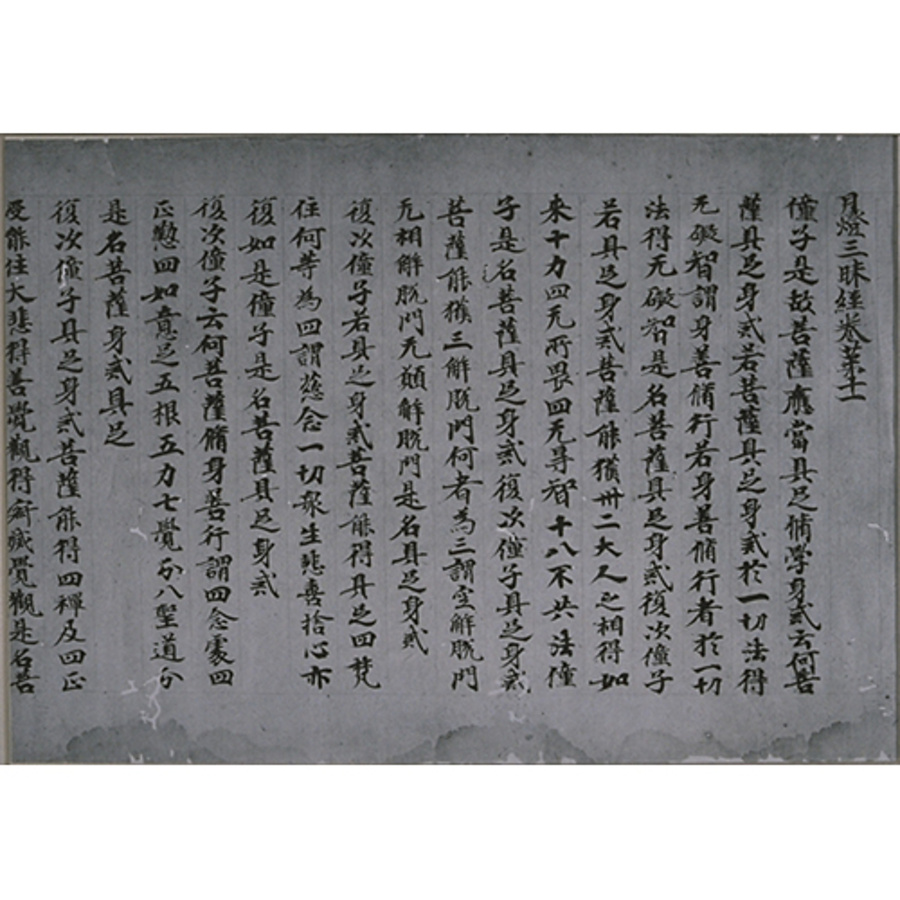 月燈三昧經卷第十一
僮子是故菩薩應當具足脩學身戒云何菩
薩具足身戒若菩薩具足身戒於一切法得
无礙智謂身善脩行若身善脩行者於一切
法得无礙智是名菩薩具足身戒復次僮子
若具足身戒菩薩能獲卅二大人之相得如
來十力四无所畏四无㝵智十八不共法僮
子是名菩薩具足身戒復次僮子具足身戒
菩薩能獲三解脫門何者為三謂空解脫門
无相解脫門无願解脫門是名具足身戒
復次僮子若具足身戒菩薩能得具足四梵
住何等為四謂慈念一切衆生悲喜捨心亦
復如是僮子是名菩薩具足身戒
復次僮子云何菩薩脩身善行謂四念處四
正懃四如意足五根五力七覺分八聖道分
是名菩薩身戒具足
復次僮子具足身戒菩薩能得四禪及四正
受能住大悲得善覺觀得寂滅覺觀是名菩